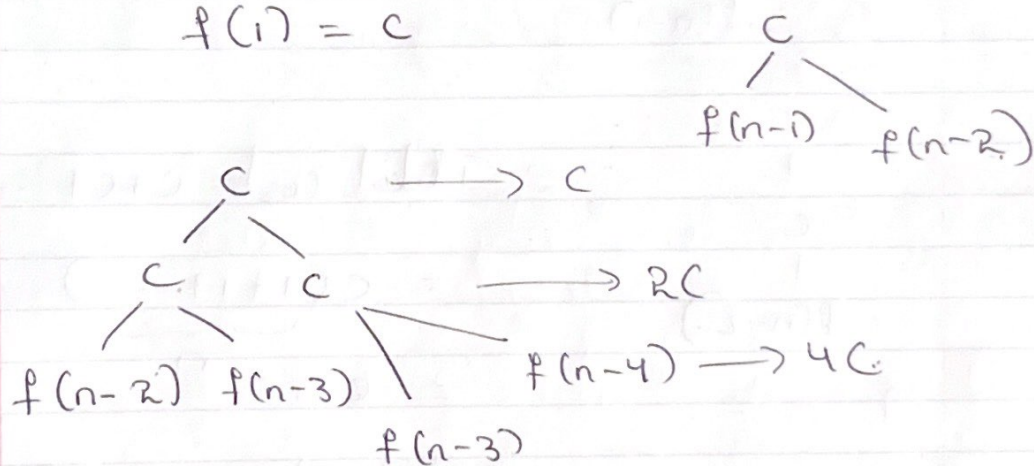 f(1) = C
C
f(n-1) f(n-2)
C → C
C C → 2C
f(n-2) f(n-3) f(n-4) → 4C
f(n-3)